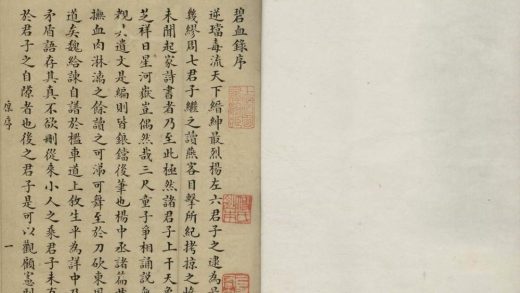 碧血錄序
逆璫毒流天下縉紳最烈楊左六君子之逮為
幾繆周七君子繼之讀燕客目擊所紀拷掠之
未聞起家詩書者乃至此極然諸君子上干天
芝祥日星河嶽豈偶然哉三尺童子爭相誦說
觀六遺文是編則皆銀鐺後筆也楊中丞諸篇
撫血肉淋漓之餘讀之可涕可舞至於刀砍東
道矣魏給諫自譜於檻車道上敘生平為詳中
矛盾語存其真不欲刪從來小人之乘君子未
於君子之自隙者也後之君子是可以觀顧憲
原序 一